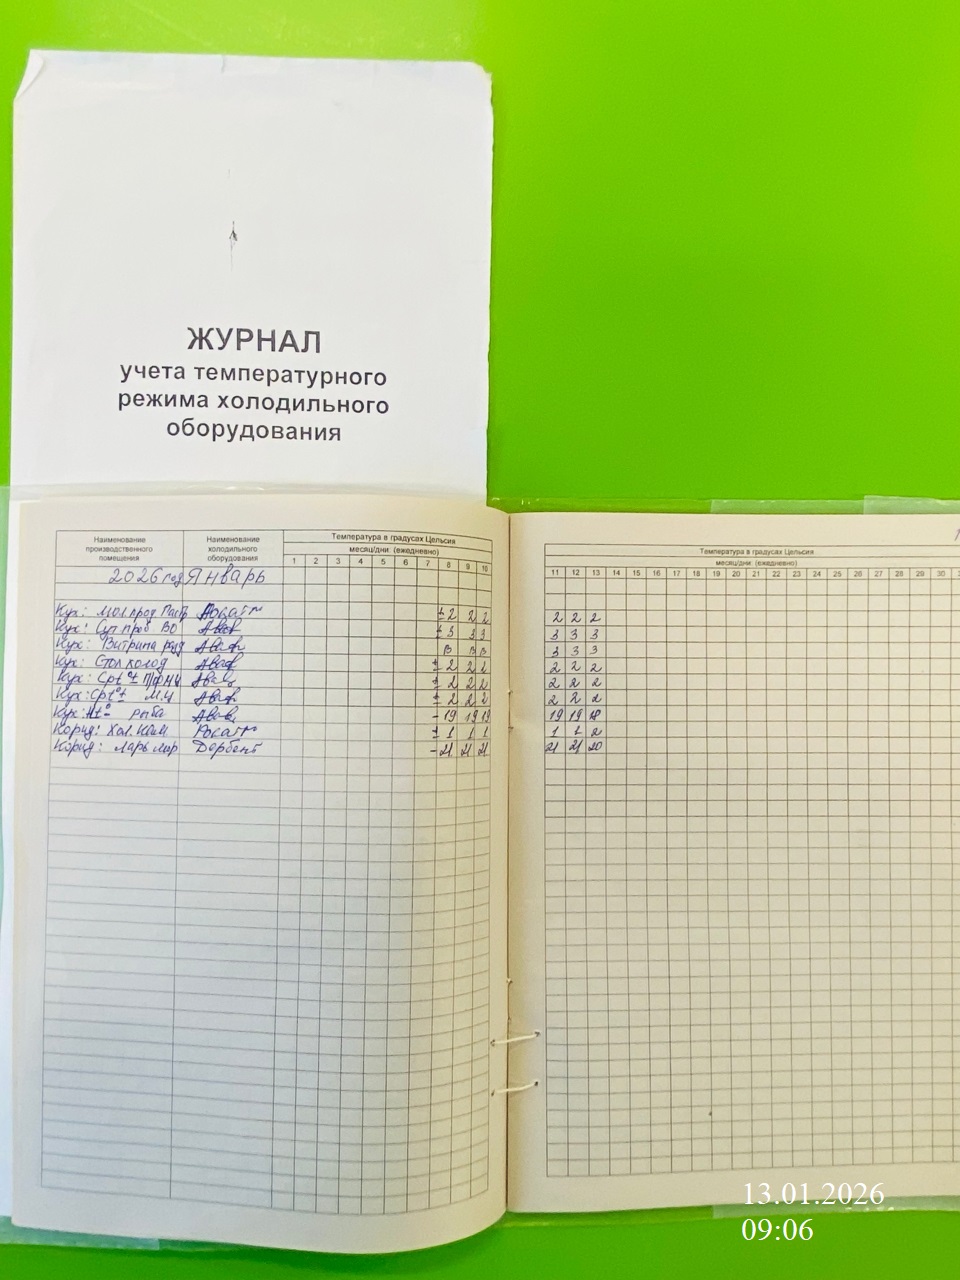 ЖУРНАЛ
учета температурного
режима холодильного
оборудования
Наименование производственного помещения
Наименование холодильного оборудования
Температура в градусах Цельсия
месяц/дни (ежедневно)
1 2 3 4 5 6 7 8 9 10
2026 год Январь
Кух: мол прод ± 2 2 2
Кух: Сут проб ± 3 3 3
Кух: Витрина В В В
Кух: Стол холод ± 2 2 2
Кух: ± 2 2 2
Кух: ± М.Ц ± 2 2 2
Кух: рыба - 19 19 19
Корид: Хол. Кам ± 1 1 1
Корид: Ларь Дербент - 21 21 21
Температура в градусах Цельсия
месяц/дни (ежедневно)
11 12 13 14 15 16 17 18 19 20 21 22 23 24 25 26 27 28 29 30
2 2 2
3 3 3
3 3 3
2 2 2
2 2 2
2 2 2
19 19 18
1 1 2
21 21 20
13.01.2026
09:06